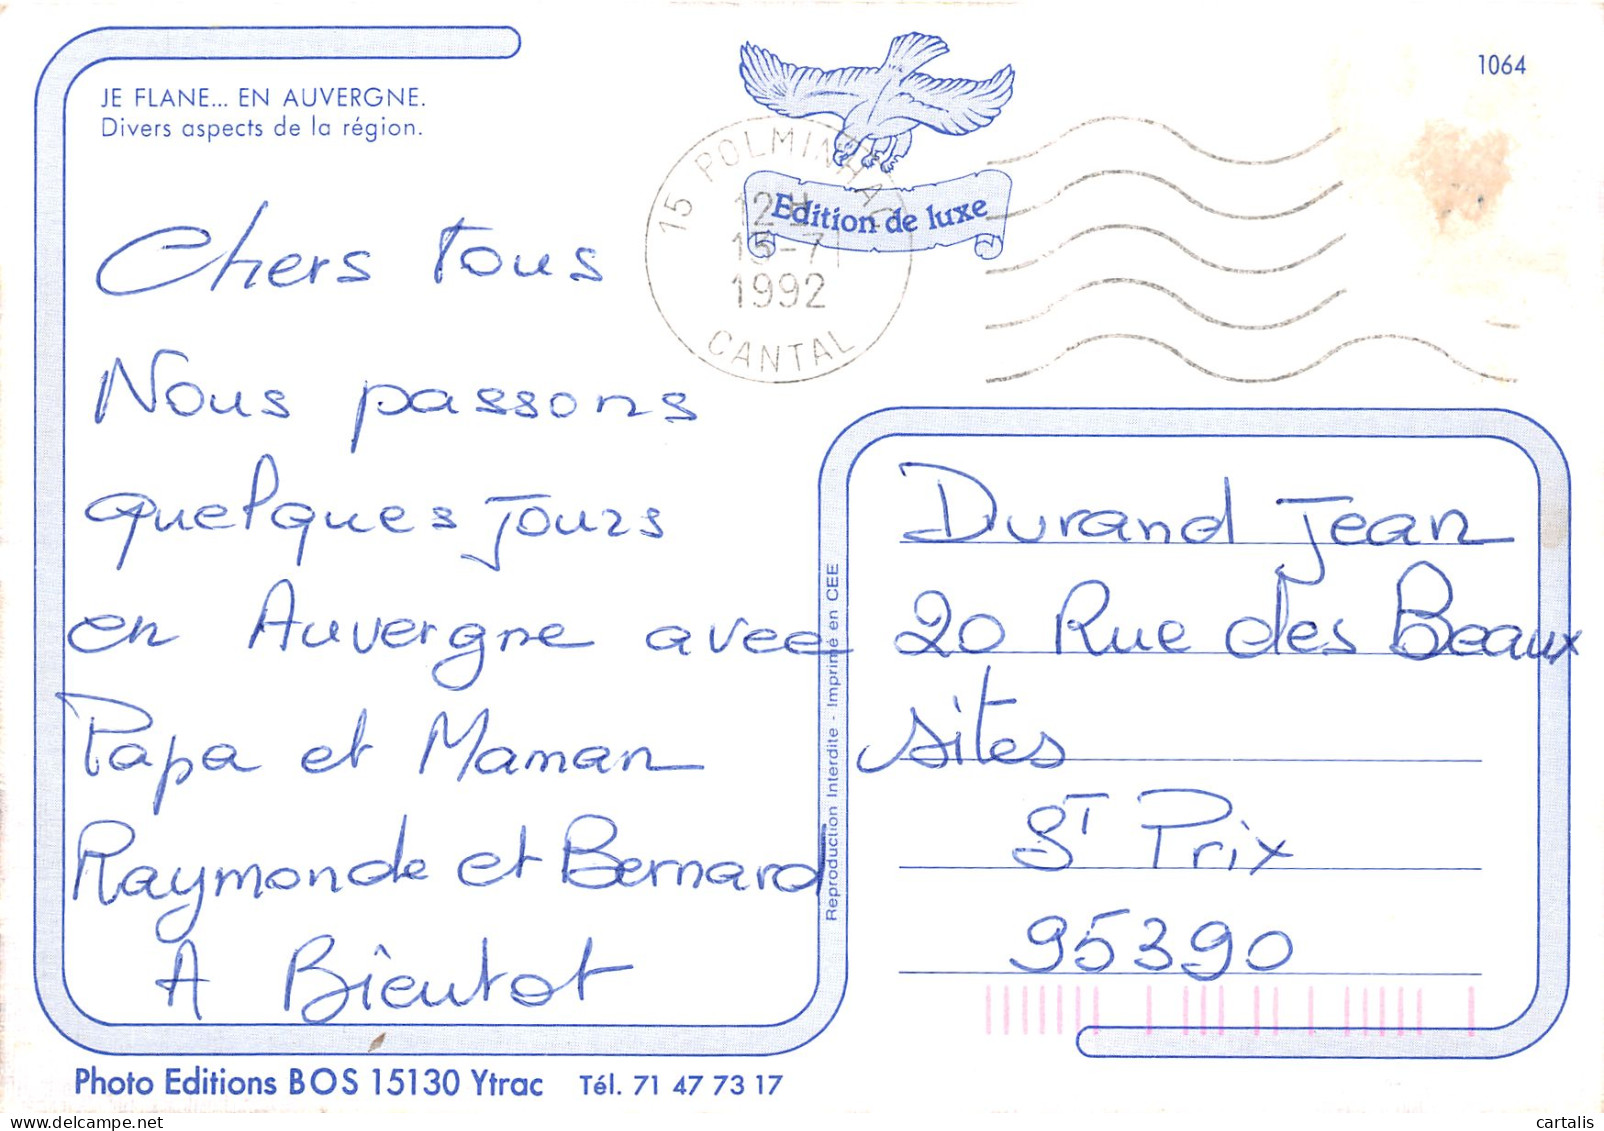 JE FLANE... EN AUVERGNE.
Divers aspects de la région.
1064
Edition de luxe
15 POLMINHAC
12 H
15-7
1992
CANTAL
Chers tous
Nous passons
quelques jours
en Auvergne avec
Papa et Maman
Raymonde et Bernard
A Bîentot
Reproduction Interdite - Imprimé en CEE
Durand Jean
20 Rue des Beaux
sites
ST Prix
95390
Photo Editions BOS 15130 Ytrac Tél. 71 47 73 17
cartalis